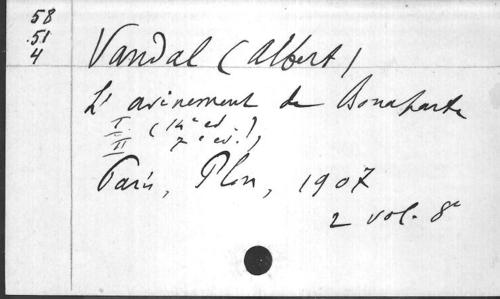 58
51
4
Vandal (Albert)
L'avènement de Bonaparte
I. (14e ed
II 7e ed.),
Paris, Plon, 1907
2 vol. 8°